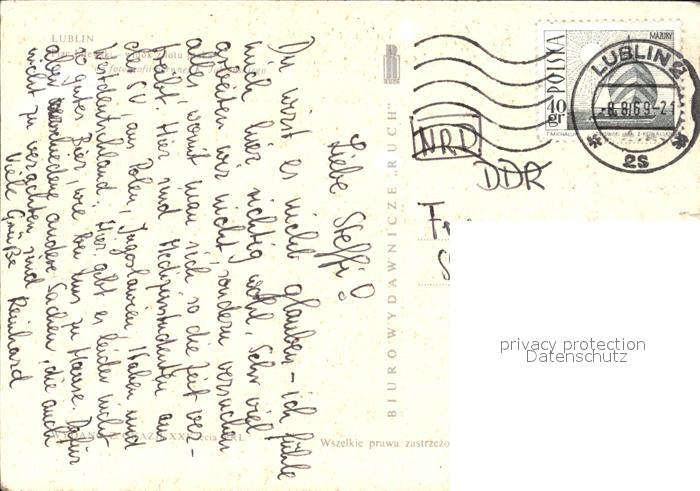 LUBLIN
BIURO WYDAWNICZE „RUCH"
RUCH
Wszelkie prawa zastrzeżo
POLSKA
MAZURY
40 gr
LUBLIN 2
-8.8.69-21
2S
NRD
DDR
Liebe Steffi!
Du wirst es nicht glauben – ich fühle
mich hier richtig wohl. Sehr viel
arbeiten wir nicht, sondern versuchen
alles, womit man sich so die Zeit ver-
treibt. Hier sind Medizinstudenten aus
der SU, aus Polen, Jugoslawien, Italien und
Westdeutschland. Hier gibt es leider nicht
so gutes Bier, wie bei uns zu Hause. Dafür
aber verschiedene andere Sachen, die auch
nicht zu verachten sind
Viele Grüße Reinhard
privacy protection
Datenschutz